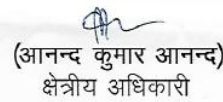 (आनन्द कुमार आनन्द)
क्षेत्रीय अधिकारी